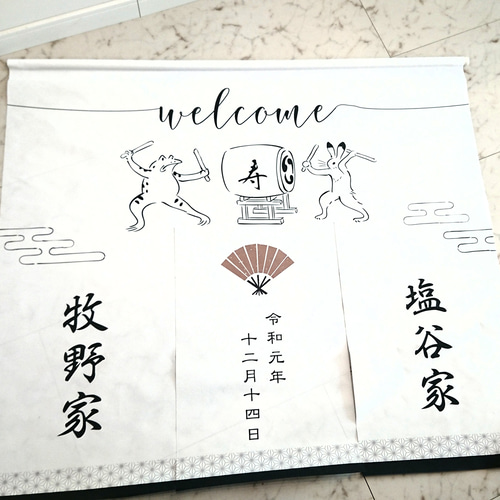 welcome
寿
塩谷家
令和元年
十二月十四日
牧野家